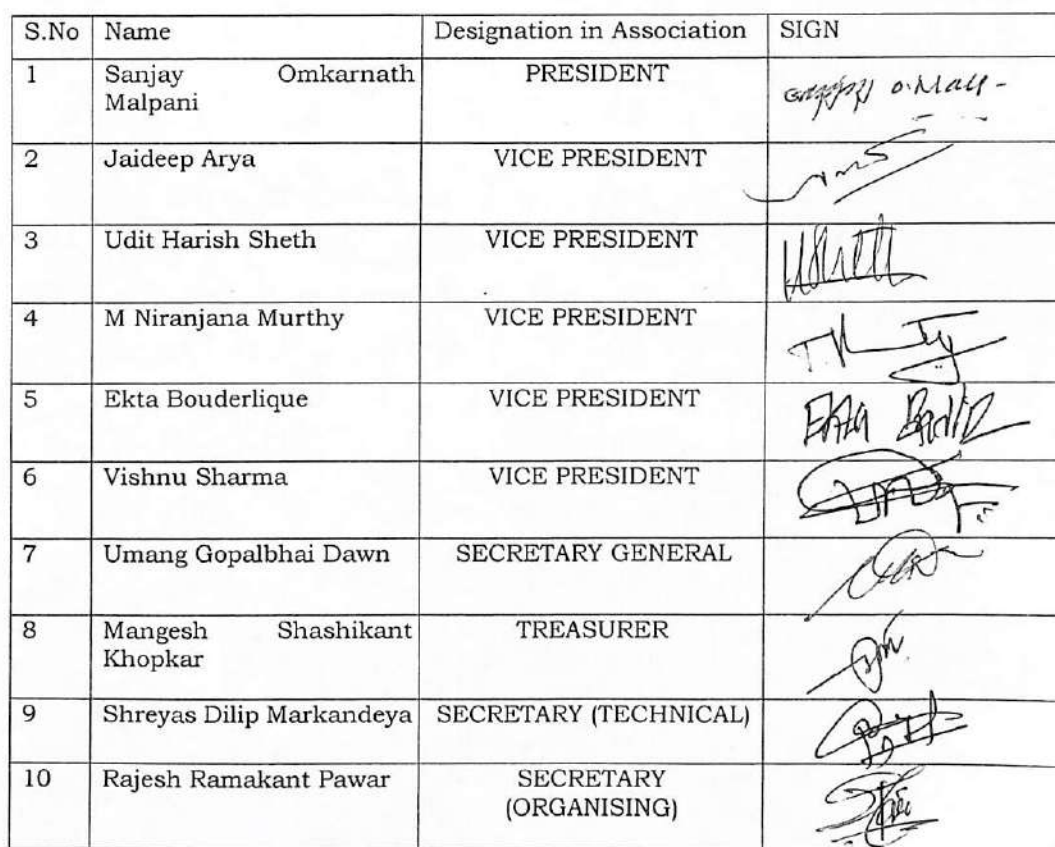 S.No Name Designation in Association SIGN
1 Sanjay Omkarnath PRESIDENT
Malpani
2 Jaideep Arya VICE PRESIDENT
3 Udit Harish Sheth VICE PRESIDENT
4 M Niranjana Murthy VICE PRESIDENT
5 Ekta Bouderlique VICE PRESIDENT
6 Vishnu Sharma VICE PRESIDENT
7 Umang Gopalbhai Dawn SECRETARY GENERAL
8 Mangesh Shashikant TREASURER
Khopkar
9 Shreyas Dilip Markandeya SECRETARY (TECHNICAL)
10 Rajesh Ramakant Pawar SECRETARY
(ORGANISING)